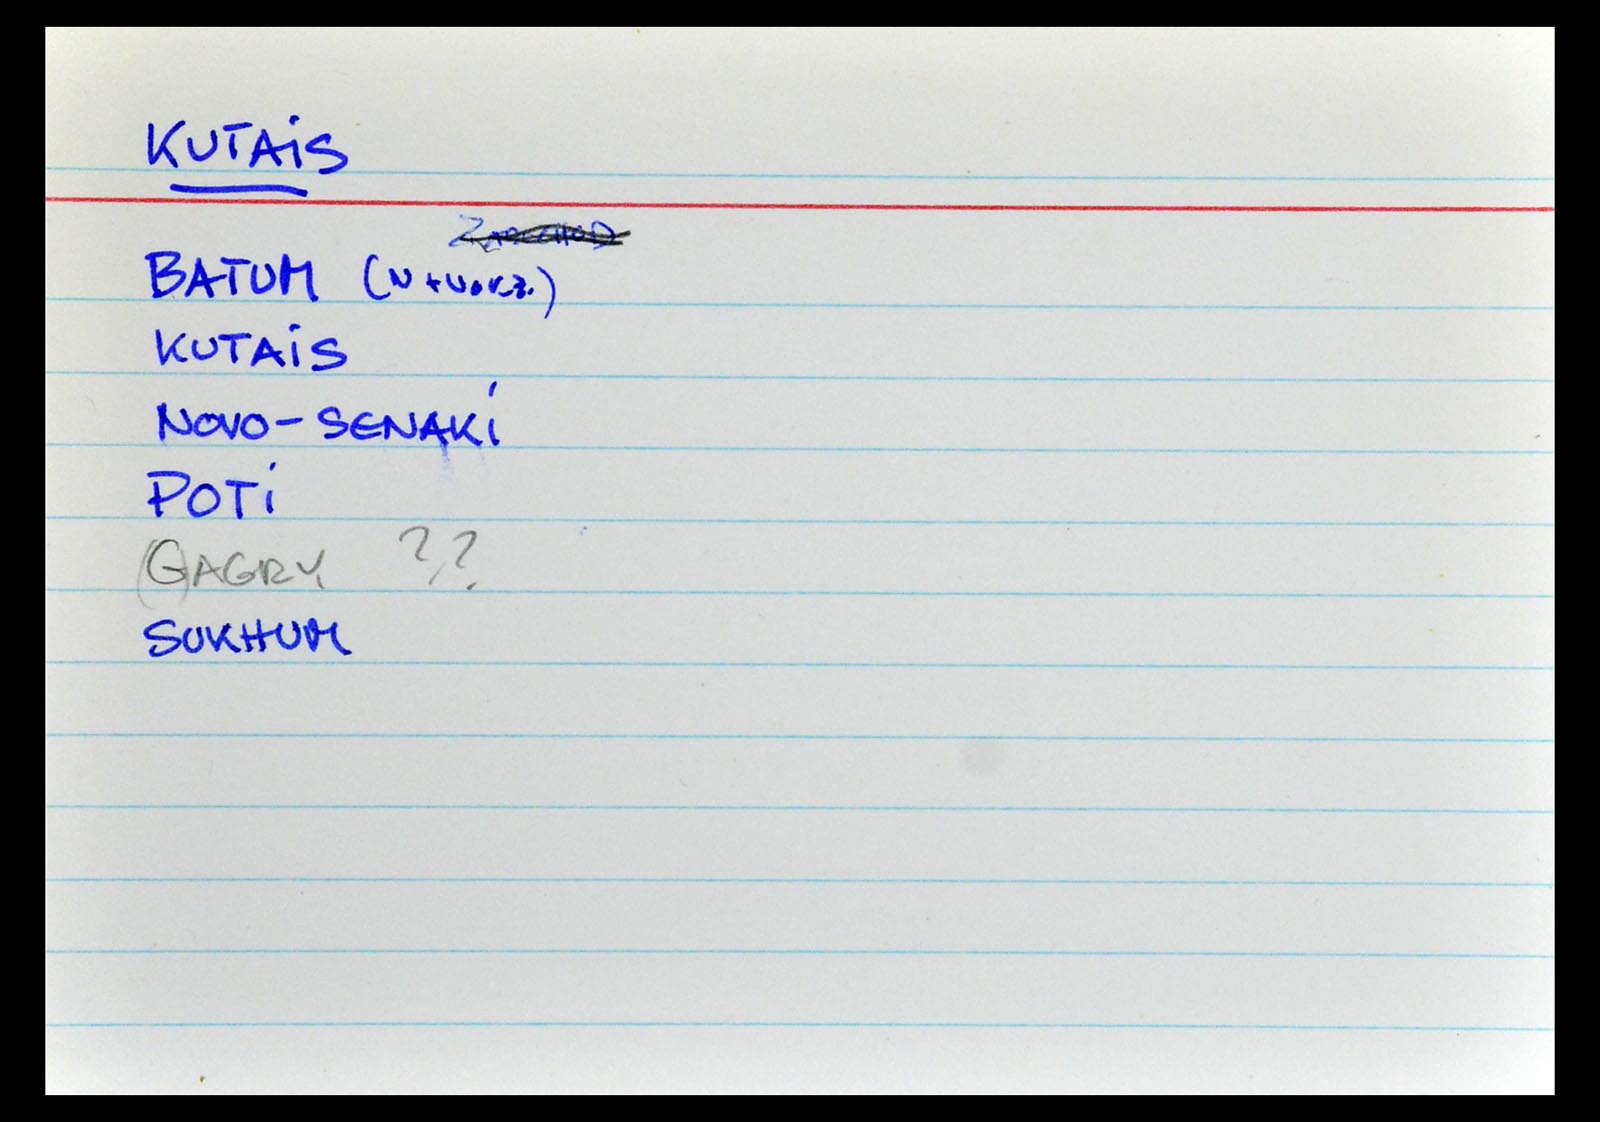 KUTAiS
BATUM (N + VOKZ.)
KUTAiS
NOVO-SENAKi
POTi
(G)AGRY ??
SUKHUM